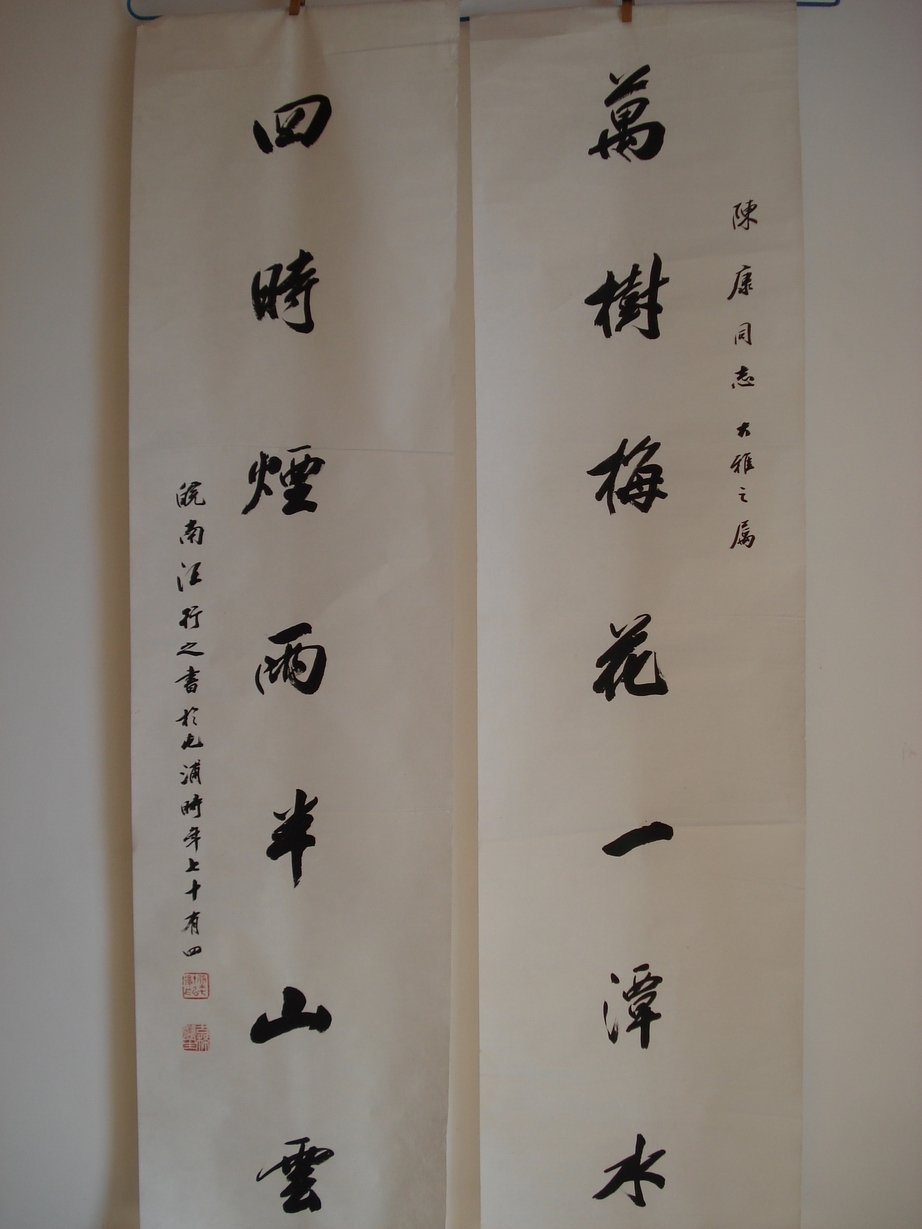 陳康同志大雅之属
萬樹梅花一潭水
四時煙雨半山雲
皖南汪行之書於屯浦時年七十有四